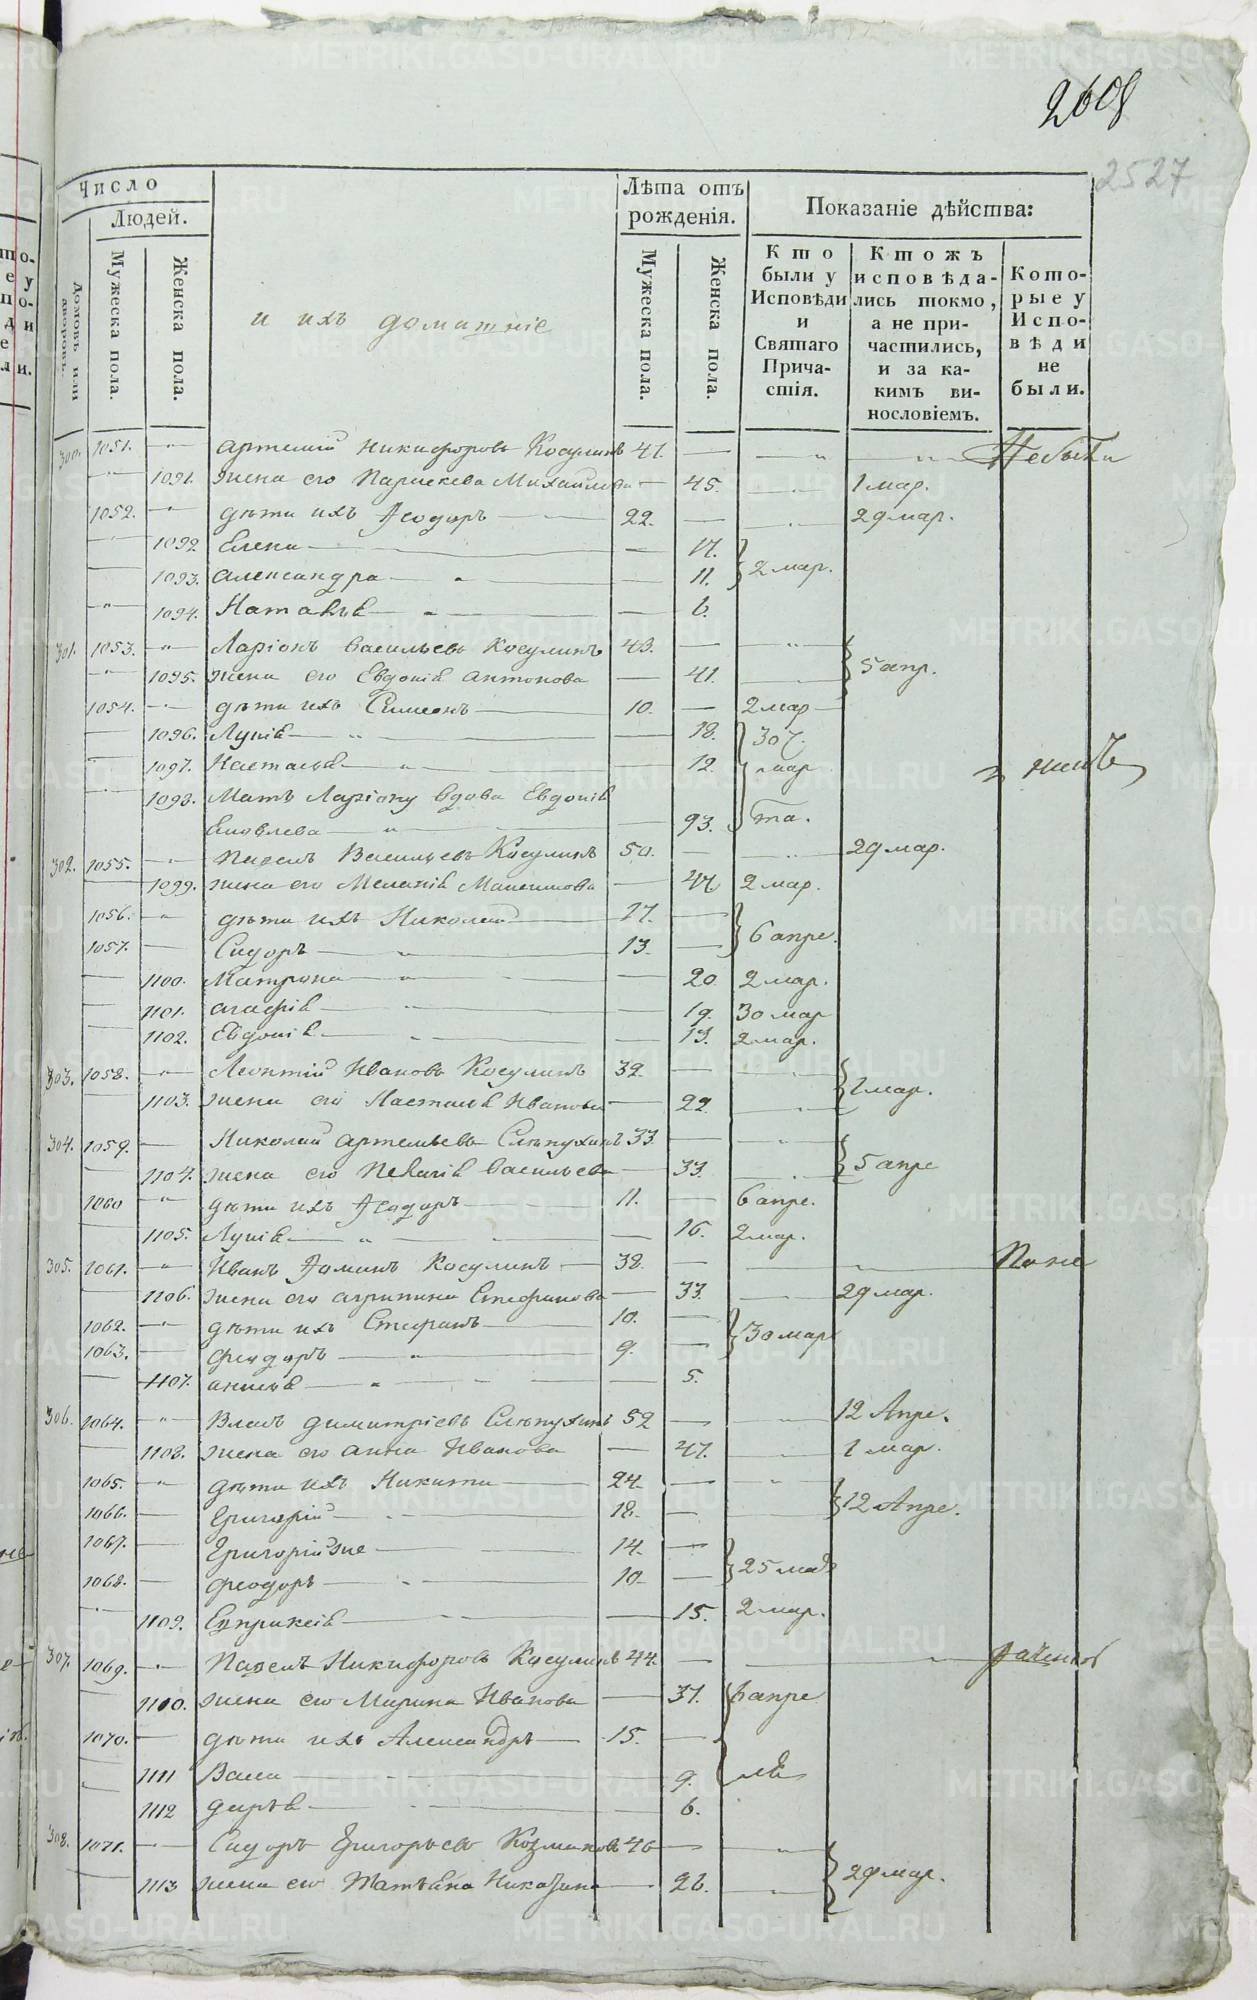 2608
2527
Число
Людей.
Домовъ или дворовъ.
Мужеска пола.
Женска пола.
и ихъ домашніе
Лѣта отъ рожденія.
Мужеска пола.
Женска пола.
Показаніе дѣйства:
Кто были у Исповѣди и Святаго Причастія.
Ктожъ исповѣдались токмо, а не причастились, и за какимъ винословіемъ.
Которые у Исповѣди не были.
300. 1051. Артемій Никифоровъ Косулинъ 47. Небыти
1091. жена его Параскева Михайлова 45. 1 мар.
1052. дѣти ихъ Ѳеодоръ 22. 29 мар.
1092 Елена 17.
1093. Александра 11. 2 мар.
1094. Наталья 6.
301. 1053. Ларіонъ Васильевъ Косулинъ 43.
1095. жена его Евдокія Антонова 41. 5 апр.
1054. дѣти ихъ Симеонъ 10. 2 мар
1096. Лукія 18. 30
1097. Настасья 12. мар
1098. Мать Ларіону вдова Евдокія
Яковлева 93. та.
302. 1055. Павелъ Васильевъ Косулинъ 50. 29 мар.
1099. жена его Меланія Максимова 47 2 мар.
1056. дѣти ихъ Николай 17.
1057. Сидоръ 13. 6 апре.
1100. Матрона 20. 2 мар.
1101. Агафія 19. 30 мар
1102. Евдокія 13. 2 мар.
303. 1058. Леонтій Ивановъ Косулинъ 32.
1103. жена его Настасья Иванова 22. 1 мар.
304. 1059. Николай Артемьевъ Слѣпухинъ 33.
1104. жена его Пелагія Васильева 33. 5 апре
1060 дѣти ихъ Ѳеодоръ 11. 6 апре.
1105. Лукія 16. 2 мар.
305. 1061. Иванъ Ѳоминъ Косулинъ 38.
1106. жена его Агрипина Стефанова 33. 29 мар.
1062. дѣти ихъ Стефанъ 10.
1063. Феодоръ 9. 30 мар
1107. Анисья 5.
306. 1064. Власъ Димитріевъ Слѣпухинъ 52 12 Апре.
1108. жена его Анна Иванова 47. 1 мар.
1065. дѣти ихъ Никита 24.
1066. Григорій 18. 12 Апре.
1067. Григорій же 14.
1068. Феодоръ 10. 25 мар
1109. Евпраксія 15. 2 мар.
307. 1069. Павелъ Никифоровъ Косулинъ 44.
1110. жена его Марина Иванова 37. 6 апре
1070. дѣти ихъ Александръ 15.
1111 Васса 9. ля
1112 Дарья 6.
308. 1071. Сидоръ Григорьевъ Козминовъ 46
1113 жена его Татьяна 26. 29 мар.